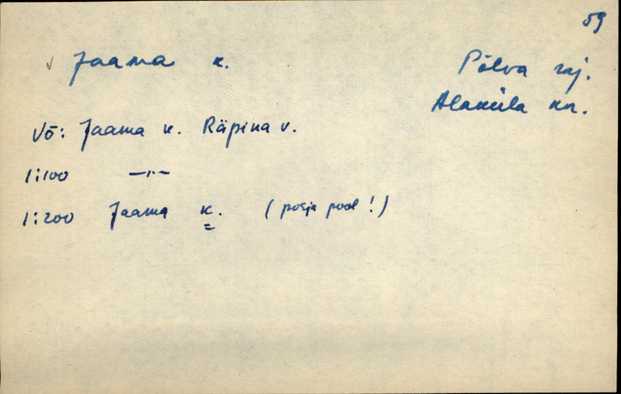 59
√ Jaama k. Põlva raj.
Alaküla kn.
Võ: Jaama k. Räpina v.
1:100 —„—
1:200 Jaama k. (põhja pool!)